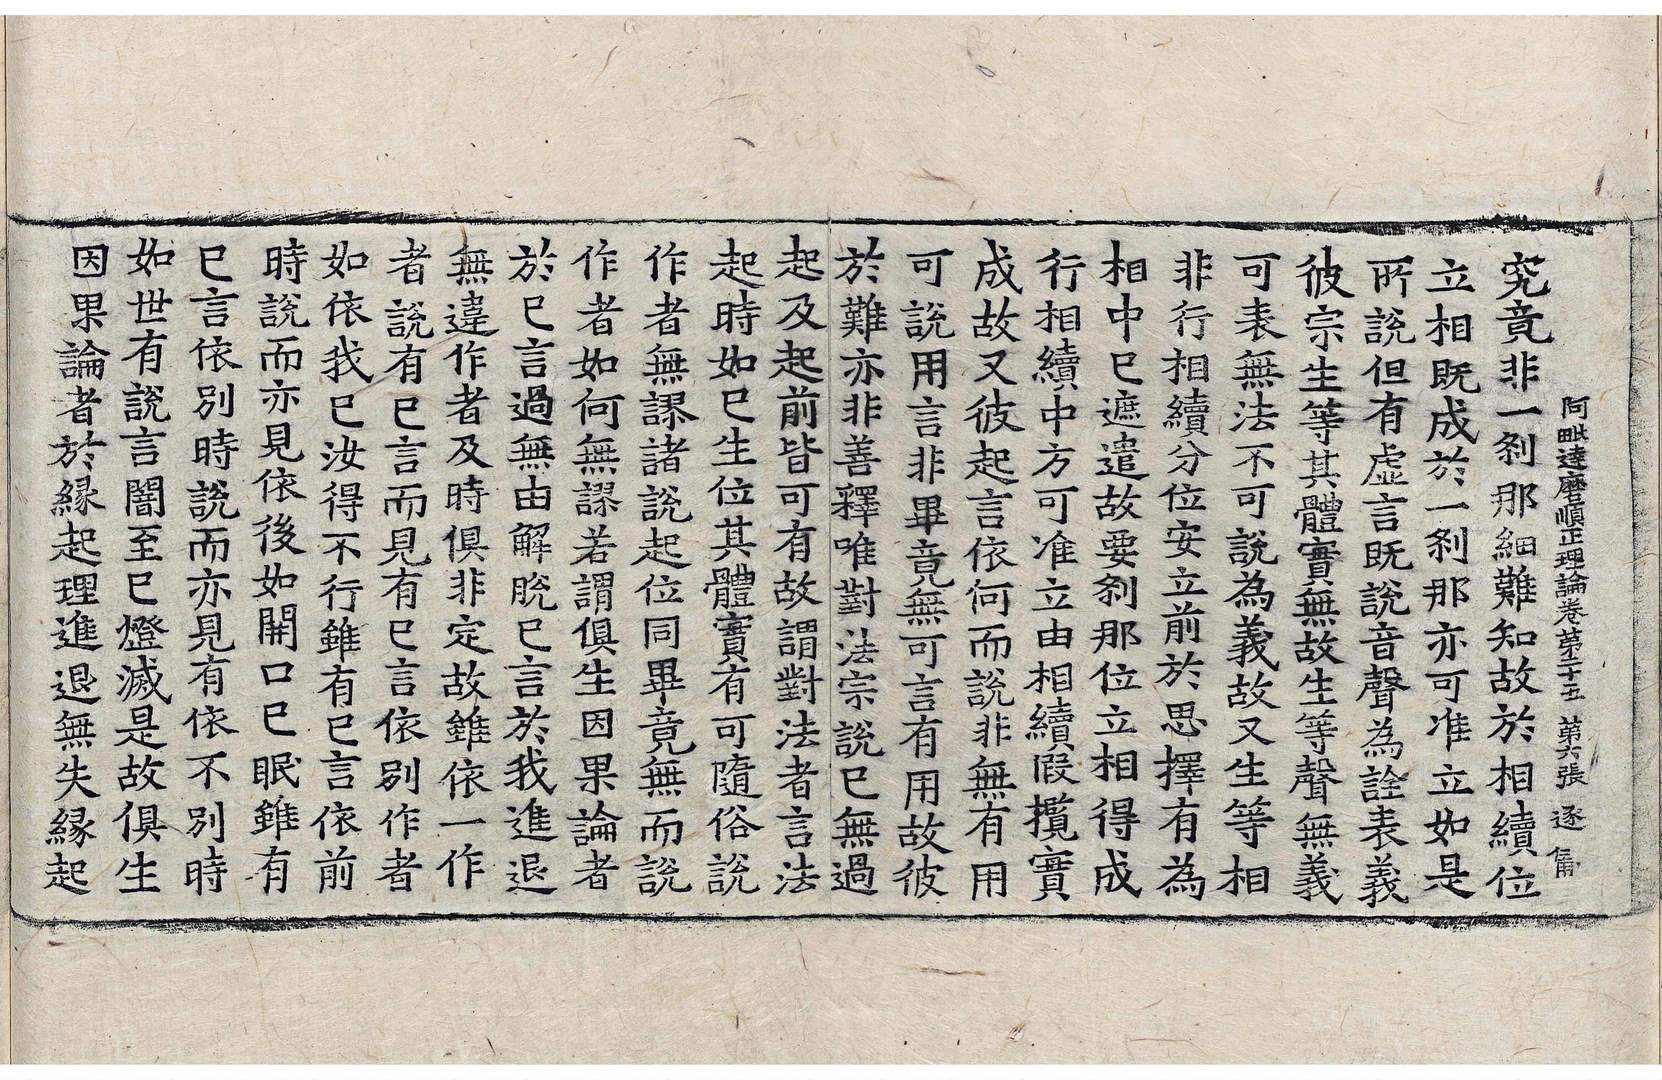 阿毗達磨順正理論卷第二十五 第六張 逐
究竟非一刹那細難知故於相續位
立相既成於一刹那亦可准立如是
所說但有虛言既說音聲為詮表義
彼宗生等其體實無故生等聲無義
可表無法不可說為義故又生等相
非行相續分位安立前於思擇有為
相中已遮遣故要刹那位立相得成
行相續中方可准立由相續假攬實
成故又彼起言依何而說非無有用
可說用言非畢竟無可言有用故彼
於難亦非善釋唯對法宗說已無過
起及起前皆可有故謂對法者言法
起時如已生位其體實有可隨俗說
作者無謬諸說起位同畢竟無而說
作者如何無謬若謂俱生因果論者
於已言過無由解脫已言於我進退
無違作者及時俱非定故雖依一作
者說有已言而見有已言依別作者
如依我已汝得不行雖有已言依前
時說而亦見依後如開口已眠雖有
已言依別時說而亦見有依不別時
如世有說言闇至已燈滅是故俱生
因果論者於緣起理進退無失緣起